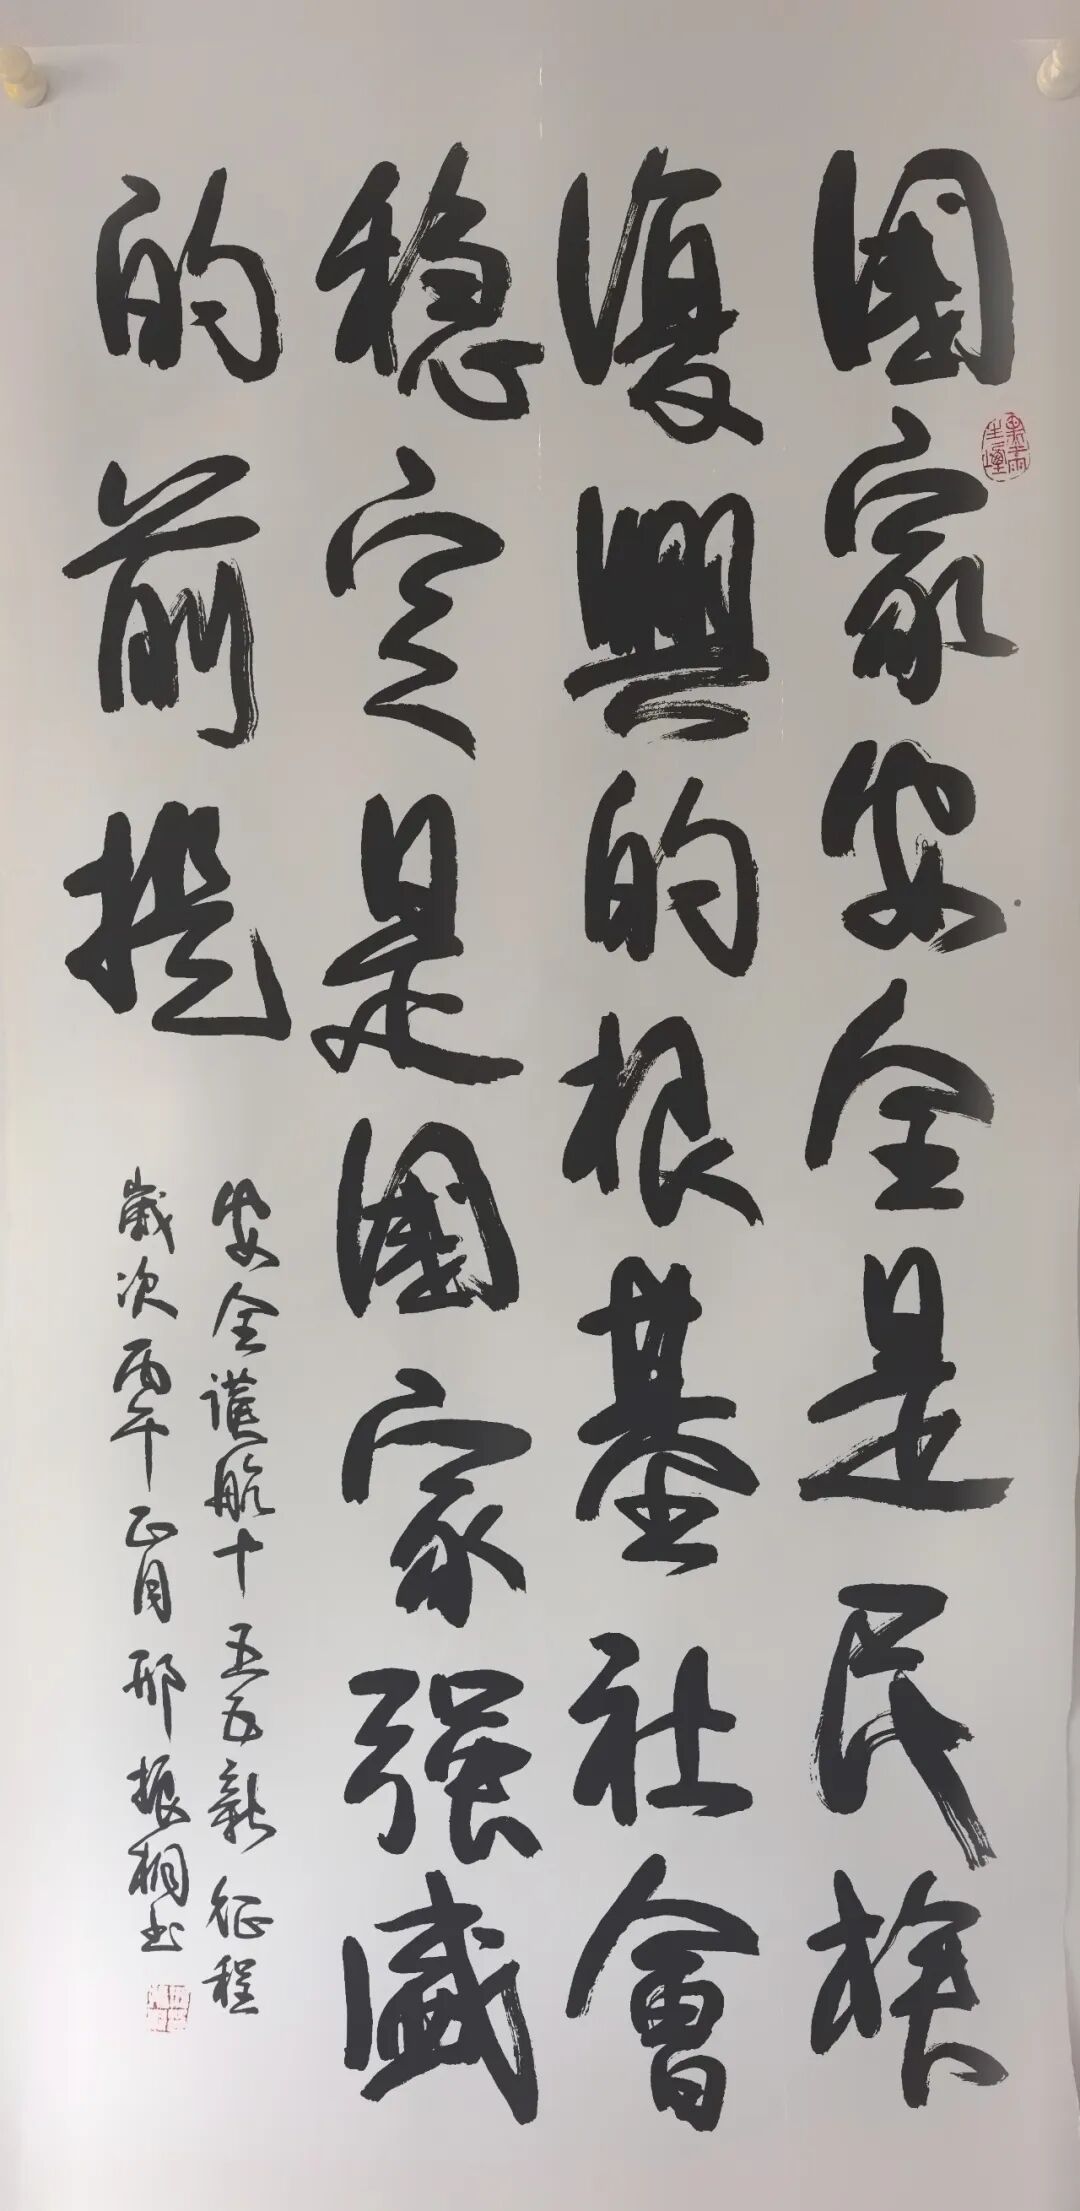 國家安全是民族
復興的根基社會
穩定是國家强盛
的前提
安全護航十五五新征程
歲次丙午正月邢振桐书